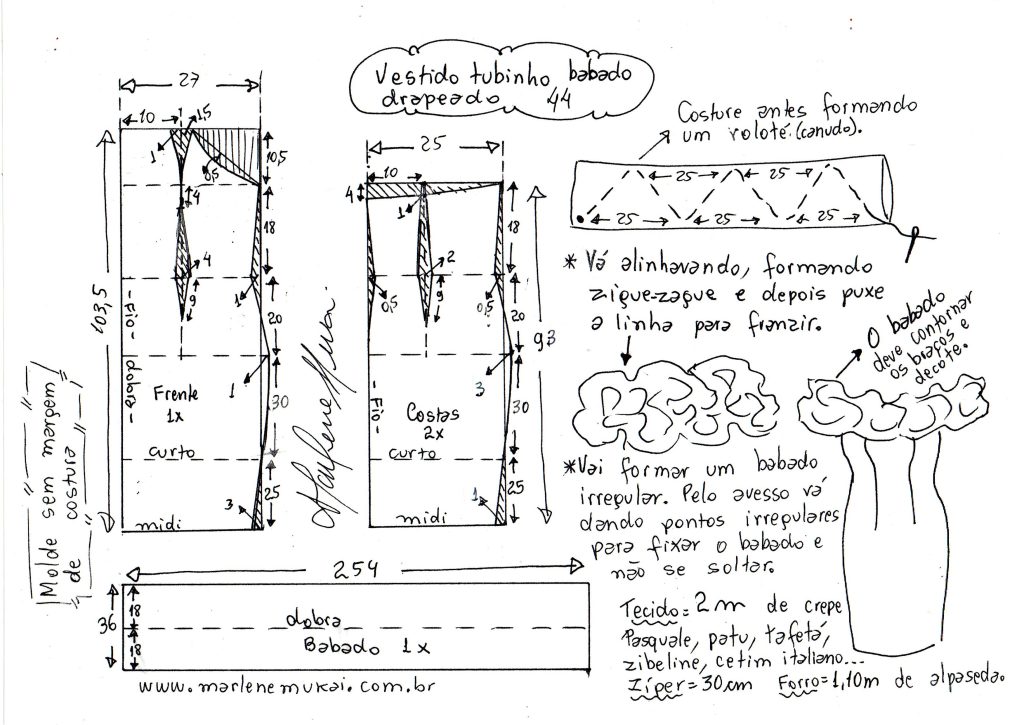 Vestido tubinho babado
drapeado 44
27
10
1,5
1
0,5
10,5
4
18
4
9
1
20
103,5
-Fio- dobra-
1
Frente
1x
30
curto
3
25
midi
Molde sem margem
de costura
25
10
4
1
18
2
9
0,5
0,5
20
93
3
-Fio-
Costas
2x
30
curto
1
25
midi
Marlene Mukai
254
36
18
18
dobra
Babado 1x
www.marlenemukai.com.br
Costure antes formando
um roloté.(canudo).
25
25
25
25
25
* Vá alinhavando, formando
zigue-zague e depois puxe
a linha para franzir.
O babado
deve contornar
os braços e
decote.
*Vai formar um babado
irregular. Pelo avesso vá
dando pontos irregulares
para fixar o babado e
não se soltar.
Tecido= 2m de crepe
Pasquale, patu, tafetá,
zibeline, cetim italiano...
Zíper=30cm Forro=1,10m de alpaseda.